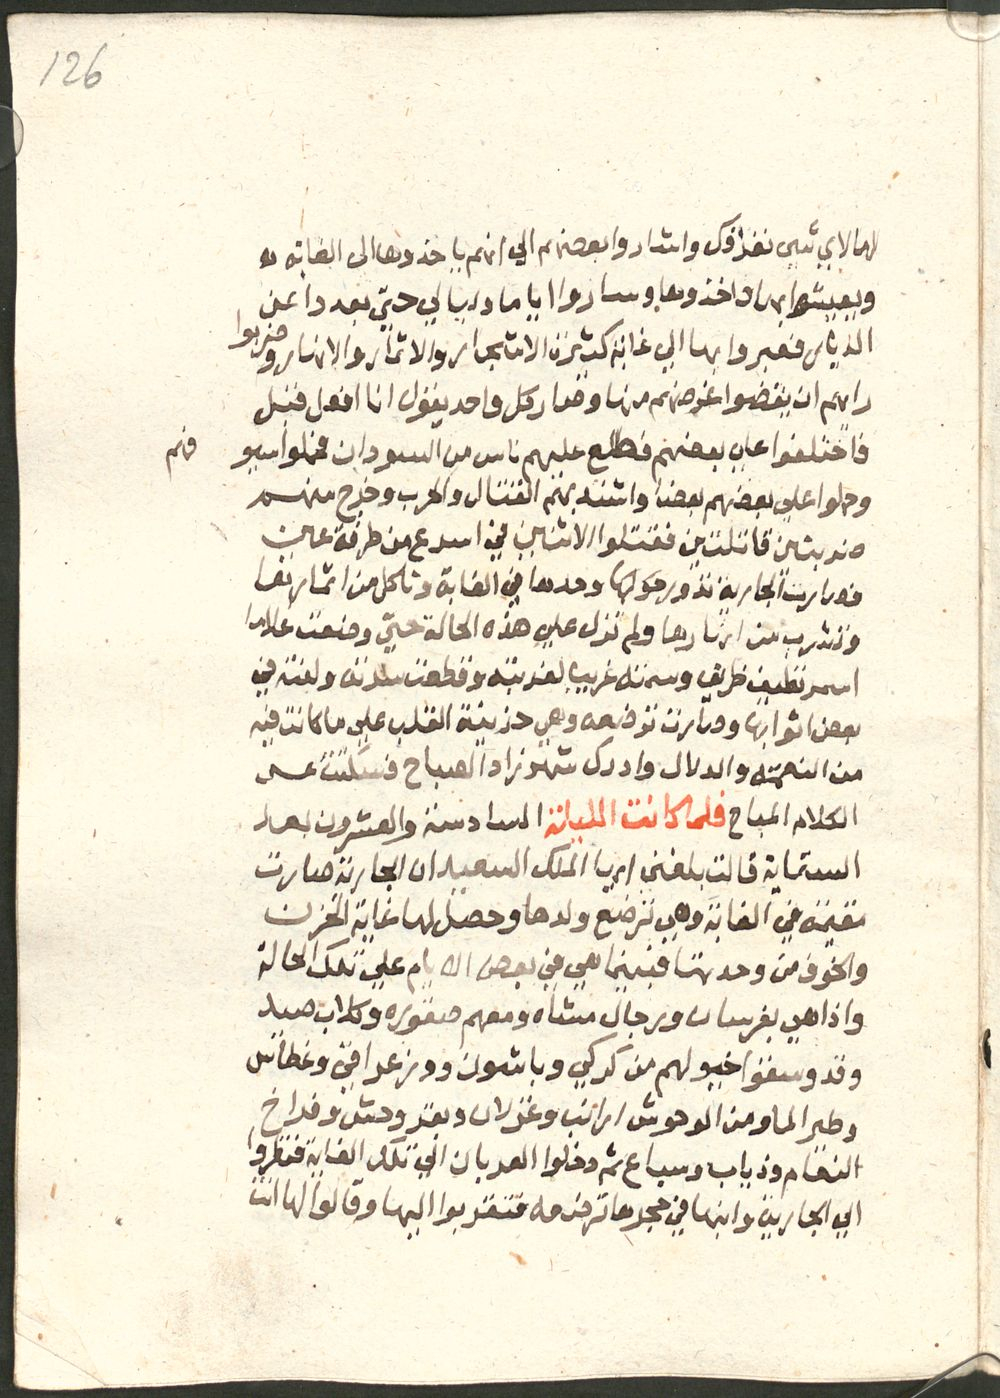 126
لهما لاي شيى نفذاوك واشاروا بعضهم الي انهم ياخذوها الى الغابه
ويعيشوا بها واخذوها وساروا اياما وليالي حتي بعدوا عن
الديار فعبروا بها الي غابة كثيرة الاشجار والاثمار والانهار وضربوا
رايهم ان يقضوا غرضهم منها وصار كل واحد يقول انا افعل قبل
فاختلفوا علي بعضهم فطلع عليهم ناس من السودان فحملوا سيو فهم
وحملوا علي بعضهم بعضا واشتد بينهم القتال والحرب وخرج منهم
ضربتين قاتلتين فقتلوا الاثنين في اسرع من طرفة عين
فصارت الجارية تدور حولها وحدها في الغابة وتاكل من اثمارها
وتشرب من انهارها ولم تزل علي هذه الحالة حتي وضعت غلاما
اسمر نظيف ظريف وسمته غريب لغربته وقطعت سرته ولفته في
بعض اثوابها وصارت ترضعه وهي حزينة القلب علي ما كانت فيه
من النعمة والدلال وادرك شهرزاد الصباح فسكتت عن
الكلام المباح فلما كانت الليلة السادسة والعشرون بعد
الستماية قالت بلغني ايها الملك السعيد ان الجارية صارت
مقيمة في الغابة وهي ترضع ولدها وحصل لها غاية الحزن
والخوف من وحدتها فبينما هي في بعض الايام علي تلك الحالة
واذا هي بفرسان ورجال مشاه ومعهم صقوره وكلاب صيد
وقد وسقوا خيولهم من كركي وباشون ووز عراقي وغطاس
وطير الما ومن الوحوش ارانب وغزلان وبقر وحش وفراخ
النعام وذياب وسباع ثم دخلوا العربان الي تلك الغابة فنظروا
الي الجارية وابنها في حجرها ترضعه فتقربوا اليها وقالوا لها انت